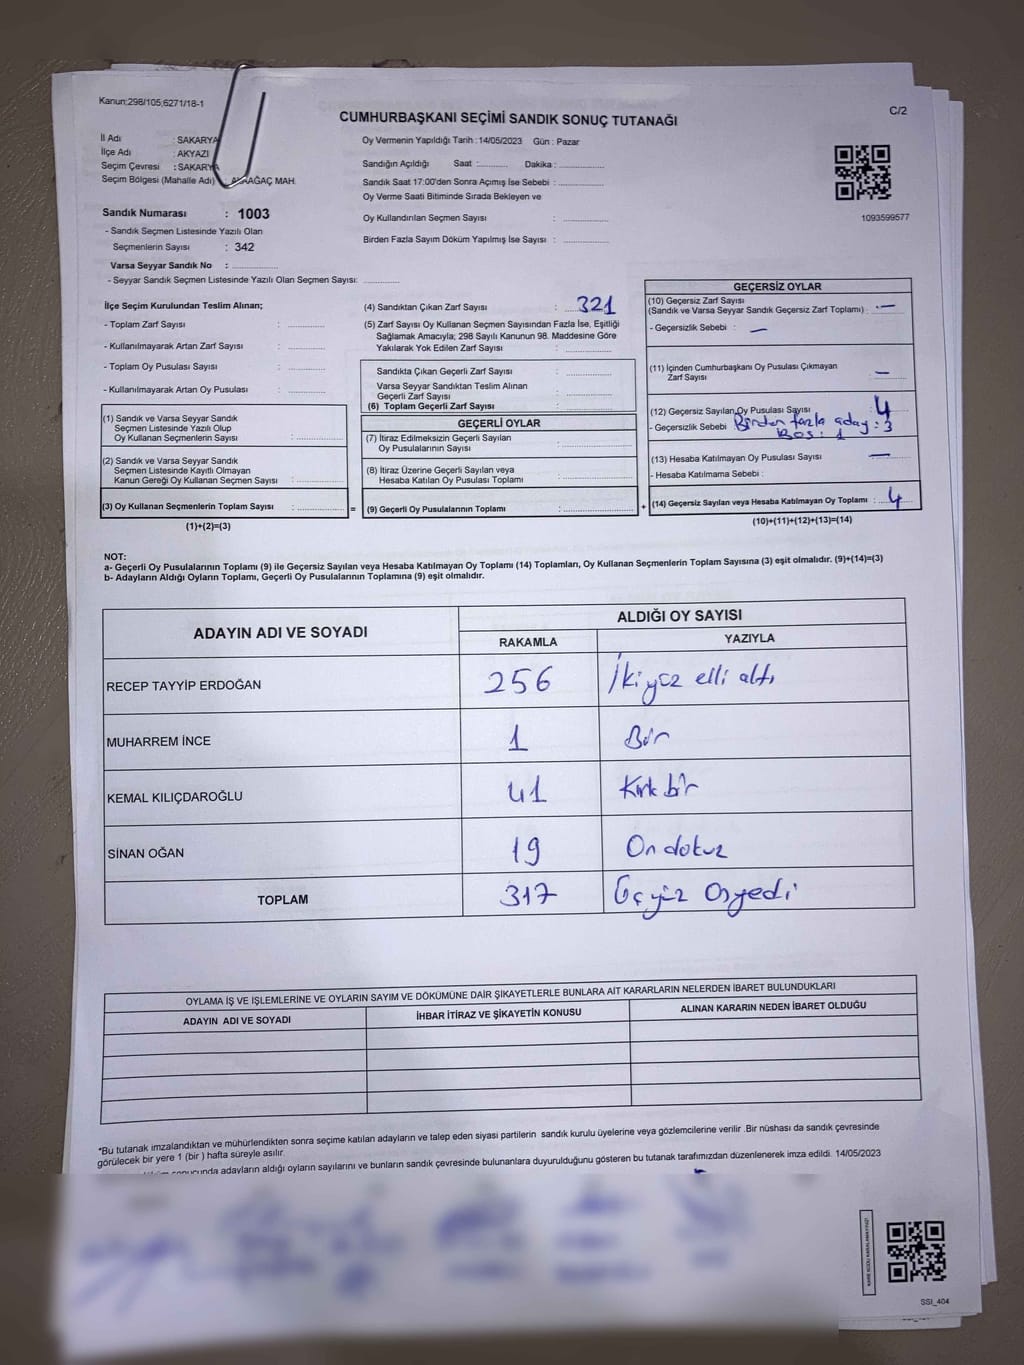 Kanun;298/105,6271/18-1
C/2
CUMHURBAŞKANI SEÇİMİ SANDIK SONUÇ TUTANAĞI
İl Adı : SAKARYA
İlçe Adı : AKYAZI
Seçim Çevresi : SAKARYA
Seçim Bölgesi (Mahalle Adı) : MAH.
Oy Vermenin Yapıldığı Tarih : 14/05/2023 Gün : Pazar
Sandığın Açıldığı Saat :............ Dakika :................
Sandık Saat 17:00'den Sonra Açımış İse Sebebi :................
Oy Verme Saati Bitiminde Sırada Bekleyen ve
Oy Kullandırılan Seçmen Sayısı :................
Birden Fazla Sayım Döküm Yapılmış İse Sayısı :................
1093599577
Sandık Numarası : 1003
- Sandık Seçmen Listesinde Yazılı Olan
Seçmenlerin Sayısı : 342
Varsa Seyyar Sandık No :................
- Seyyar Sandık Seçmen Listesinde Yazılı Olan Seçmen Sayısı:............
İlçe Seçim Kurulundan Teslim Alınan;
- Toplam Zarf Sayısı :............
- Kullanılmayarak Artan Zarf Sayısı :............
- Toplam Oy Pusulası Sayısı :............
- Kullanılmayarak Artan Oy Pusulası :............
(1) Sandık ve Varsa Seyyar Sandık
Seçmen Listesinde Yazılı Olup
Oy Kullanan Seçmenlerin Sayısı :............
(2) Sandık ve Varsa Seyyar Sandık
Seçmen Listesinde Kayıtlı Olmayan
Kanun Gereği Oy Kullanan Seçmen Sayısı :............
(3) Oy Kullanan Seçmenlerin Toplam Sayısı :............ =
(1)+(2)=(3)
(4) Sandıktan Çıkan Zarf Sayısı : 321
(5) Zarf Sayısı Oy Kullanan Seçmen Sayısından Fazla İse, Eşitliği
Sağlamak Amacıyla; 298 Sayılı Kanunun 98. Maddesine Göre
Yakılarak Yok Edilen Zarf Sayısı :............
Sandıkta Çıkan Geçerli Zarf Sayısı :............
Varsa Seyyar Sandıktan Teslim Alınan
Geçerli Zarf Sayısı :............
(6) Toplam Geçerli Zarf Sayısı :............
GEÇERLİ OYLAR
(7) İtiraz Edilmeksizin Geçerli Sayılan
Oy Pusulasının Sayısı :............
(8) İtiraz Üzerine Geçerli Sayılan veya
Hesaba Katılan Oy Pusulası Toplamı :............
(9) Geçerli Oy Pusulalarının Toplamı :............ +
GEÇERSİZ OYLAR
(10) Geçersiz Zarf Sayısı
(Sandık ve Varsa Seyyar Sandık Geçersiz Zarf Toplamı) : —
- Geçersizlik Sebebi : —
(11) İçinden Cumhurbaşkanı Oy Pusulası Çıkmayan
Zarf Sayısı : —
(12) Geçersiz Sayılan Oy Pusulası Sayısı : 4
- Geçersizlik Sebebi Birden fazla aday : 3
Boş : 1
(13) Hesaba Katılmayan Oy Pusulası Sayısı : —
- Hesaba Katılmama Sebebi :
(14) Geçersiz Sayılan veya Hesaba Katılmayan Oy Toplamı : 4
(10)+(11)+(12)+(13)=(14)
NOT:
a- Geçerli Oy Pusulalarının Toplamı (9) ile Geçersiz Sayılan veya Hesaba Katılmayan Oy Toplamı (14) Toplamları, Oy Kullanan Seçmenlerin Toplam Sayısına (3) eşit olmalıdır. (9)+(14)=(3)
b- Adayların Aldığı Oyların Toplamı, Geçerli Oy Pusulalarının Toplamına (9) eşit olmalıdır.
ADAYIN ADI VE SOYADI
ALDIĞI OY SAYISI
RAKAMLA YAZIYLA
RECEP TAYYİP ERDOĞAN 256 İki yüz elli altı
MUHARREM İNCE 1 Bir
KEMAL KILIÇDAROĞLU 41 Kırk bir
SİNAN OĞAN 19 On dokuz
TOPLAM 317 Üç yüz Onyedi
OYLAMA İŞ VE İŞLEMLERİNE VE OYLARIN SAYIM VE DÖKÜMÜNE DAİR ŞİKAYETLERLE BUNLARA AİT KARARLARIN NELERDEN İBARET BULUNDUKLARI
ADAYIN ADI VE SOYADI İHBAR İTİRAZ VE ŞİKAYETİN KONUSU ALINAN KARARIN NEDEN İBARET OLDUĞU
*Bu tutanak imzalandıktan ve mühürlendikten sonra seçime katılan adayların ve talep eden siyasi partilerin sandık kurulu üyelerine veya gözlemcilerine verilir .Bir nüshası da sandık çevresinde
görülecek bir yere 1 (bir ) hafta süreyle asılır.
sonucunda adayların aldığı oyların sayılarını ve bunların sandık çevresinde bulunanlara duyurulduğunu gösteren bu tutanak tarafımızdan düzenlenerek imza edildi. 14/05/2023
SSI_404